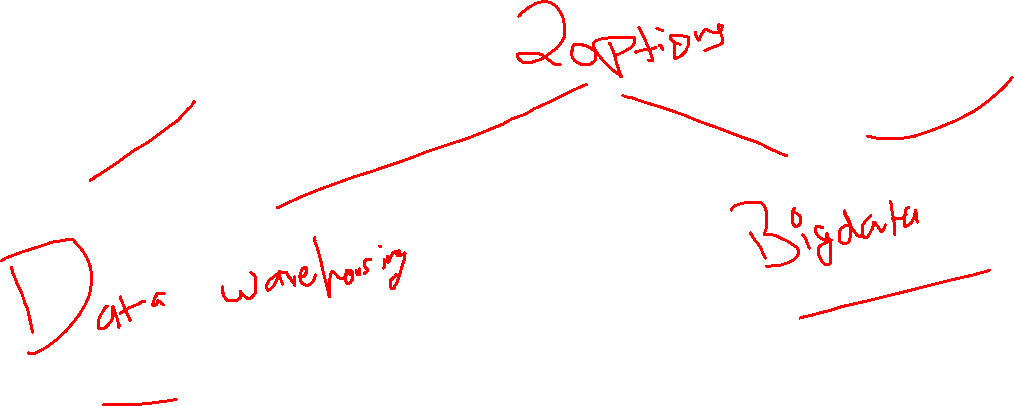 2options
Data warehousing
Bigdata